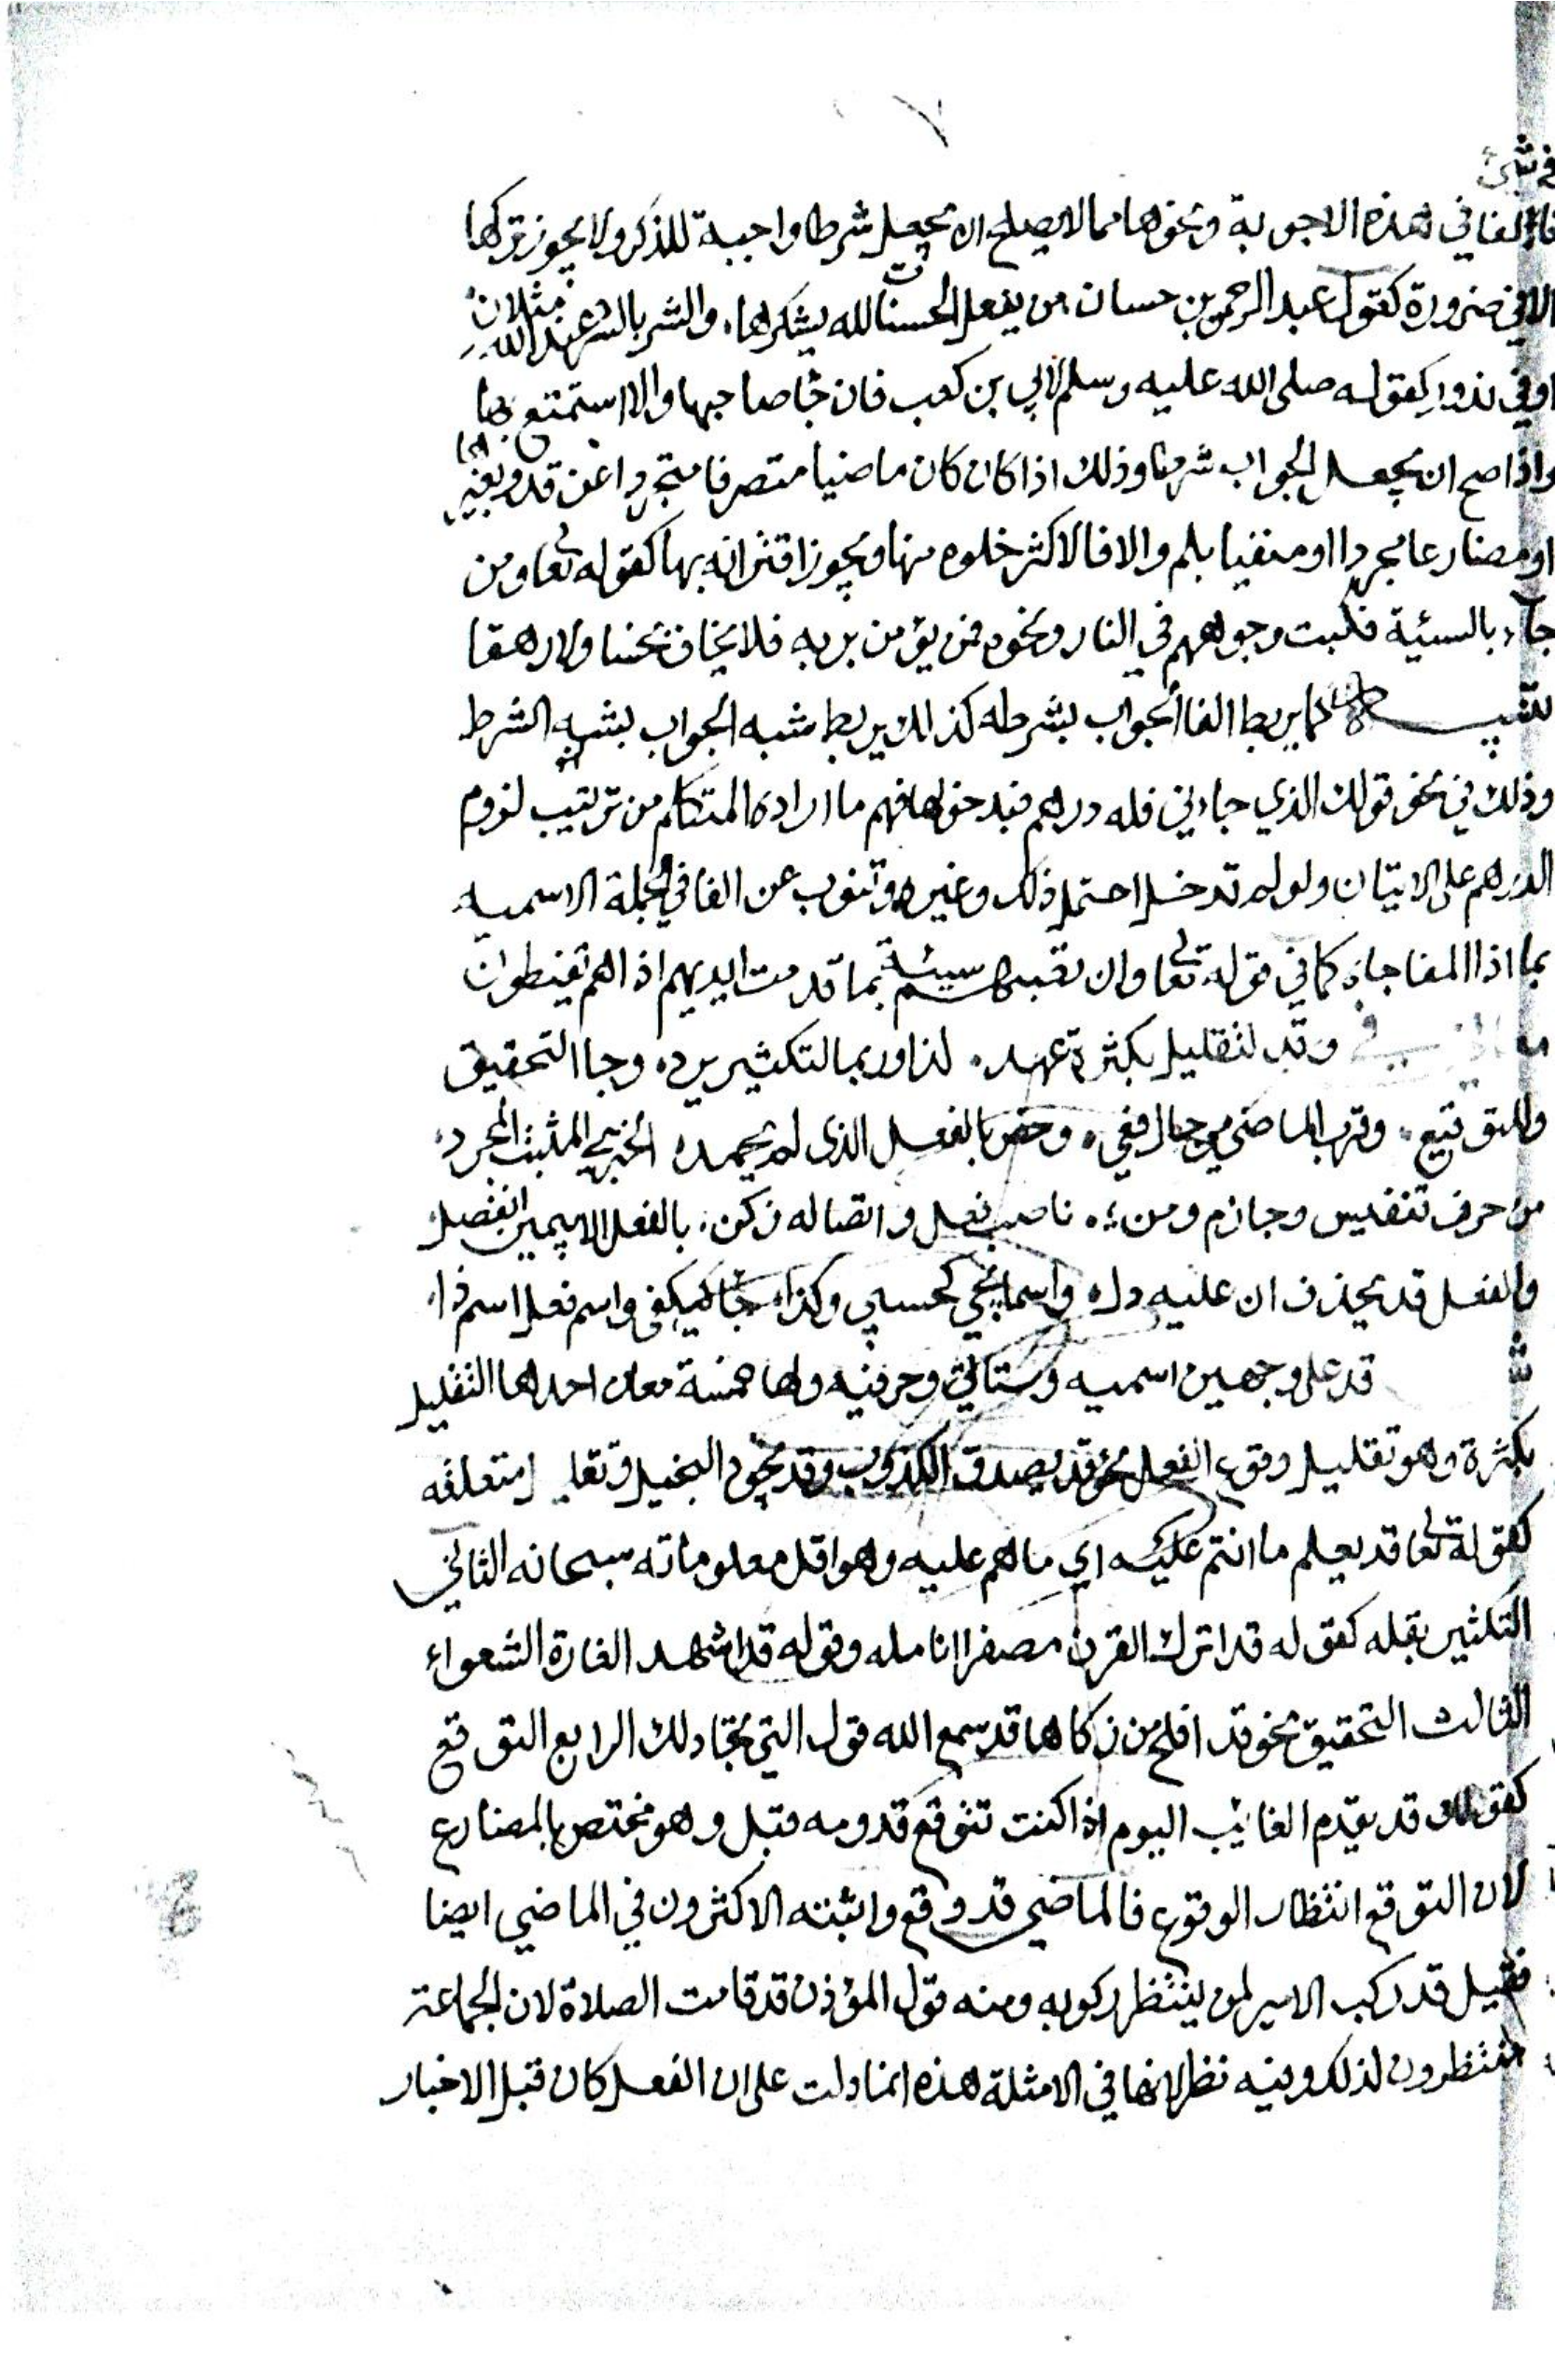 في شيء
فالفا في هذه الاجوبة ونحوها مما لا يصلح ان يجعل شرطا واجبة للذكر ولا يجوز تركها
الا في ضرورة كقول عبد الرحمن بن حسان من يفعل الحسنات الله يشكرها، والشر بالشر عند الله مثلان
او في ندور كقوله صلى الله عليه وسلم لابي بن كعب فان جا صاحبها والا استمتع بها
واذا صح ان يجعل الجواب شرطا وذلك اذا كان كان ماضيا متصرفا متجردا عن قد وغيرها
او مضارعا مجردا او منفيا بلم والا فالاكثر خلوه منها ويجوز اقترانه بها كقوله تعالى ومن
جاء بالسيئة فكبت وجوههم في النار ونحوه فمن يؤمن بربه فلا يخاف بخسا ولا رهقا
تنبيه كما يربط الفا الجواب بشرطه كذلك يربط شبه الجواب بشبه الشرط
وذلك في نحو قولك الذي جاءني فله دراهم فبدخولها فهم ما اراده المتكلم من ترتيب لزوم
الدراهم على الاتيان ولو لم تدخل احتمل ذلك وغيره وتنوب عن الفا في الجملة الاسميه
بما اذا المفاجاة كما في قوله تعالى وان تصبهم سيئة بما قدمت ايديهم اذا هم يقنطون
وقد لتقليل بكثرة عهد، لذا وربما التكثير يرد، وجا التحقيق
وللتوقيع، وقرب الماضي من حال ففي، وخص بالفعل الذي لم يجمد، الخبري المثبت المجرد،
من حرف تنفيس وجازم ومن، ناصب فعل واتصاله زكن، بالفعل الا بيمين انفصل
والفعل قد يحذف ان عليه دل، واسما يجي كحسبي وكذا، جا كيكفي واسم فعل اسم ذا،
ش قد على وجهين اسميه وستاتي وحرفيه ولها خمسة معان احدها التقليل
بكثرة وهو تقليل وقوع الفعل نحو قد يصدق الكذوب وقد يجود البخيل وتقليل متعلقه
كقوله تعالى قد يعلم ما انتم عليه اي ما هم عليه وهو اقل معلوماته سبحانه الثاني
التكثير بقله كقوله قد اترك القرن مصفرا انامله وقوله قد اشهد الغارة الشعواء
الثالث التحقيق نحو قد افلح من زكاها قد سمع الله قول التي تجادلك الرابع التوقع
كقولك قد يقدم الغايب اليوم اذا كنت تتوقع قدومه قبل وهو مختص بالمضارع
لان التوقع انتظار الوقوع فالماضي قد وقع واثبته الاكثرون في الماضي ايضا
فقيل قد ركب الامير لمن ينتظر ركوبه ومنه قول المؤذن قد قامت الصلاة لان الجماعة
منتظرون لذلك وفيه نظر لانها في الامثلة هذه انما دلت على ان الفعل كان قبل الاخبار